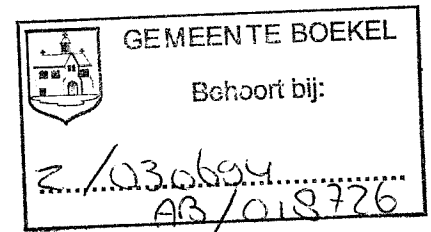 GEMEENTE BOEKEL
Behoort bij:
Z/030694
AB/018726